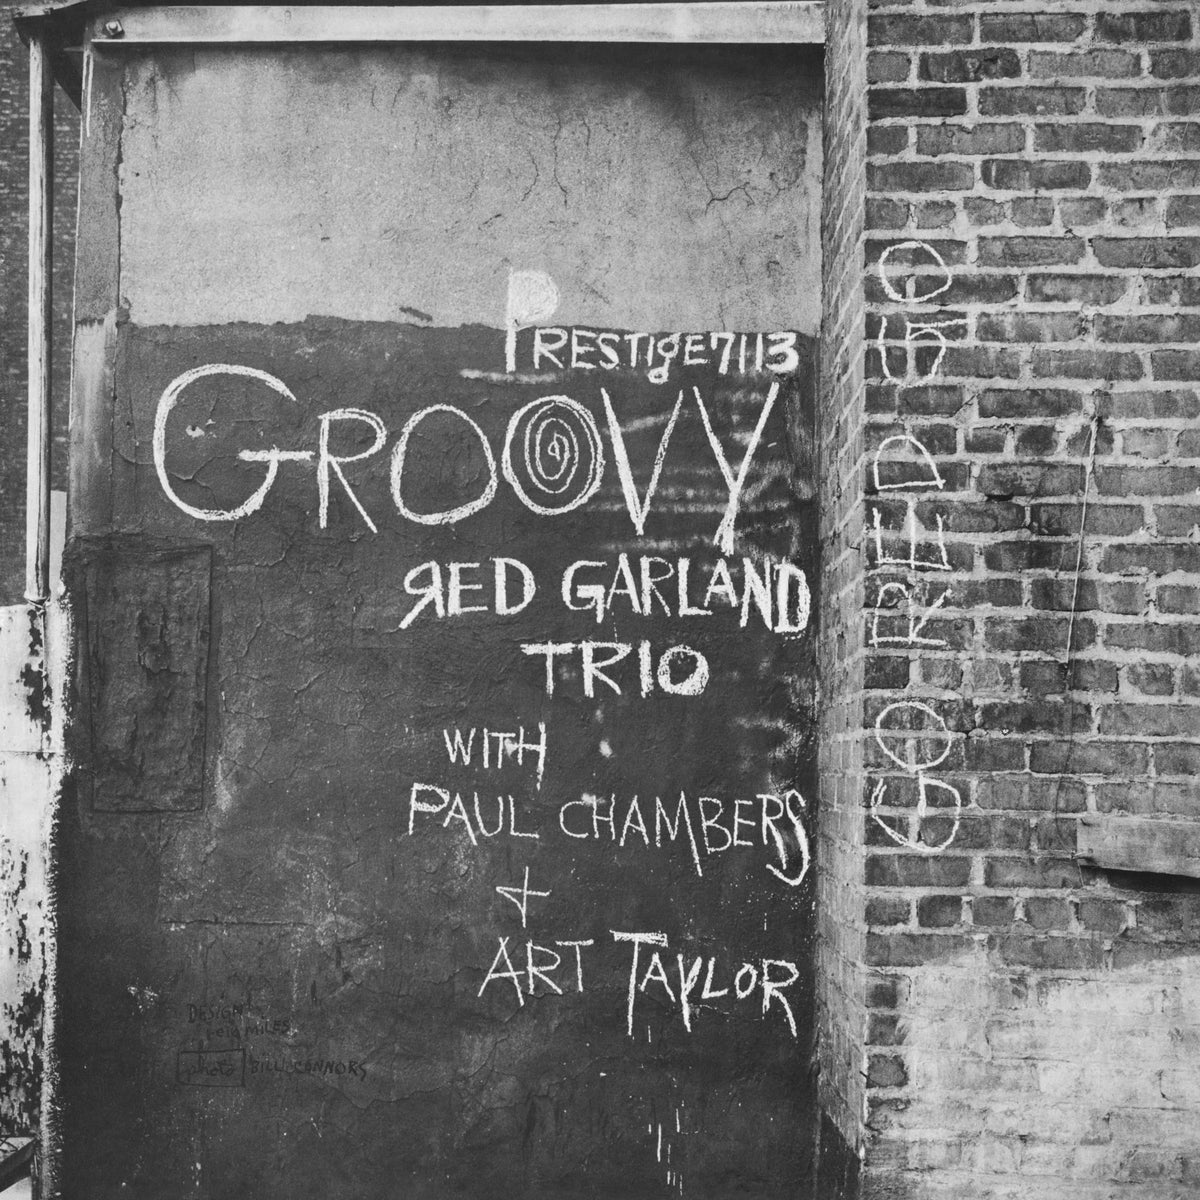 PRESTIGE 7113
GROOVY
RED GARLAND
TRIO
WITH
PAUL CHAMBERS
+
ART TAYLOR
GO RED GO
DESIGN
reid MILES
photo BILL CONNORS